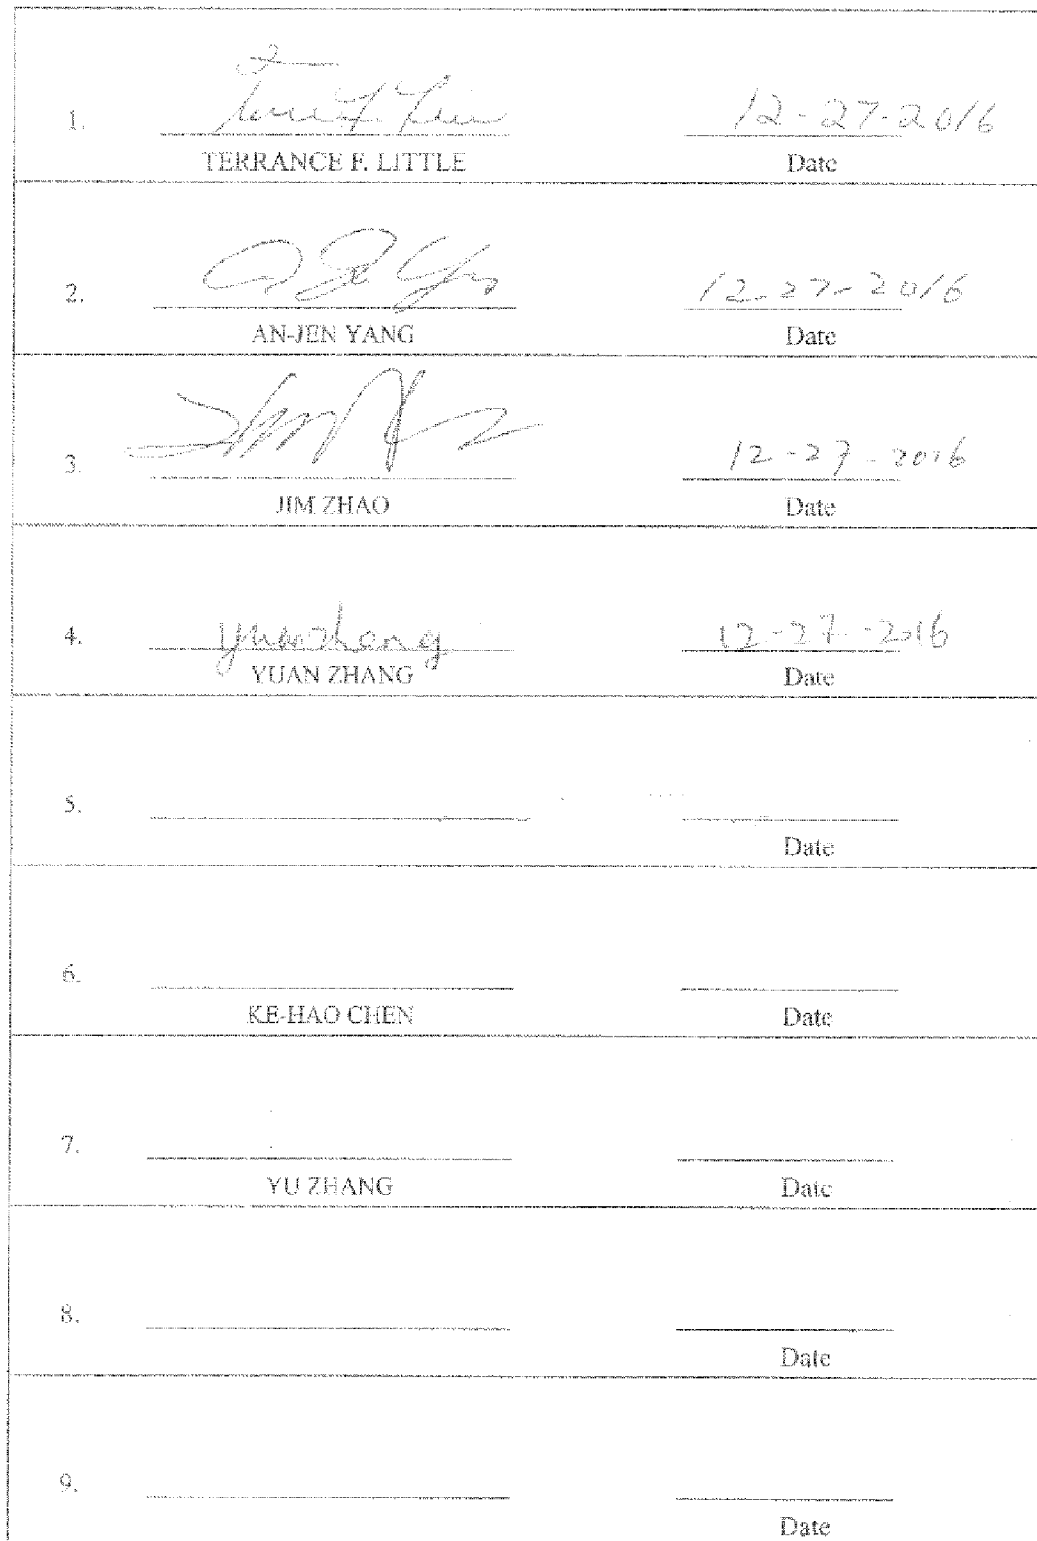 1. Terrance F. Little 12-27-2016
TERRANCE F. LITTLE Date
2. 12-27-2016
AN-JEN YANG Date
3. 12-27-2016
JIM ZHAO Date
4. yuan zhang 12-27-2016
YUAN ZHANG Date
5.
Date
6.
KE-HAO CHEN Date
7.
YU ZHANG Date
8.
Date
9.
Date